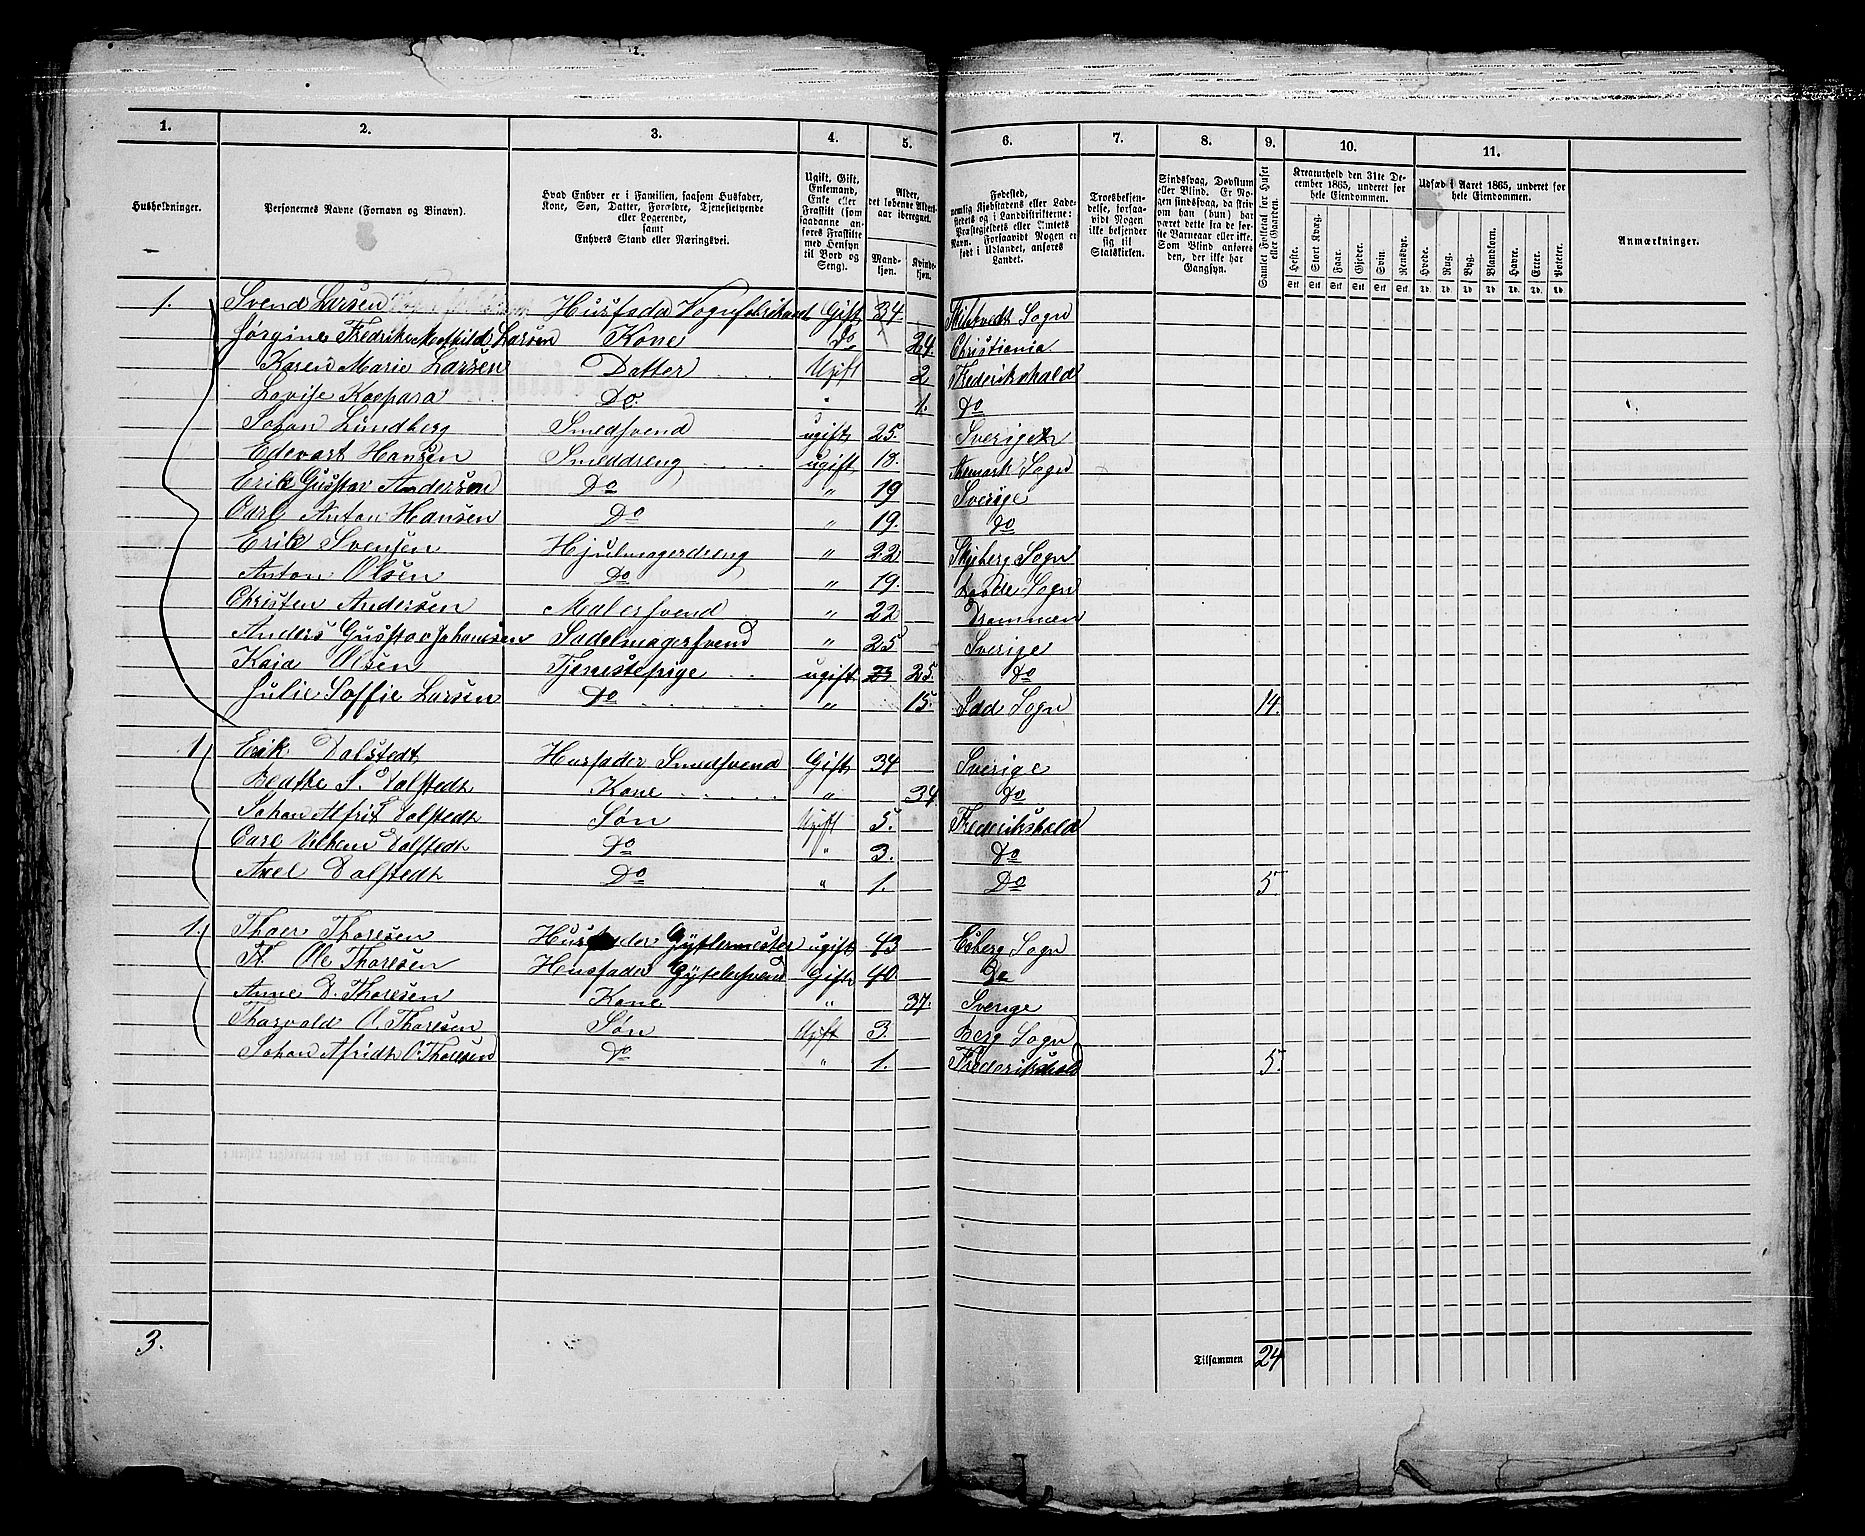 1. 2. 3. 4. 5. 6. 7. 8. 9. 10. 11.
Husholdninger.
Personernes Navne (Fornavn og Binavn).
Hvad Enhver er i Familien, saasom Husfader,
Kone, Søn, Datter, Forældre, Tjenestetyende
eller Logerende,
samt
Enhvers Stand eller Næringsvei.
Ugift, Gift,
Enkemand,
Enke eller
Fraskilt (som
saadanne an-
føres Fraskilte
med Hensyn
til Bord og
Seng).
Alder,
det løbende Alders-
aar iberegnet.
Mand-
kjøn.
Kvinde-
kjøn.
Fødested,
nemlig Kjøbstadens eller Lade-
stedets og i Landdistrikterne:
Præstegjeldets eller Amtets
Navn. Forsaavidt Nogen er
født i Udlandet, anføres
Landet.
Troesbekjen-
delse, forsaa-
vidt Nogen
ikke bekjender
sig til
Statskirken.
Sindssvag, Døvstum
eller Blind. Er No-
gen sindssvag, da skri-
ves om han (hun) har
været dette fra de før-
ste Barneaar eller ikke.
Som Blind anføres
den, der ikke har
Gangsyn.
Samlet Folketal for Huset
eller Gaarden.
Kreaturhold den 31te De-
cember 1865, underet for
hele Eiendommen.
Heste. Stort Kvæg. Faar. Gjeder. Svin. Rensdyr.
Stk Stk Stk Stk Stk Stk
Udsæd i Aaret 1865, underet for
hele Eiendommen.
Hvede. Rug. Byg. Blandkorn. Havre. Erter. Poteter.
Td. Td. Td. Td. Td. Td. Td.
Anmærkninger.
1. Svend Larsen Husfader Vognfabrikant Gift 34. Sogn
Jørgine Fredrikke Mathilde Larsen Kone Do 24. Christiania
Karen Marie Larsen Datter Ugift 2 Frederikshald
Lovise Kaspara Do. " 1. Do
Johan Lundberg Smedsvend ugift 25. Sverige
Edevart Hansen Smeddreng ugift 18. Aremark Sogn
Erik Gustav Andersen Do " 19 Sverige
Carl Anton Hansen Do " 19. Do
Erik Svensen Hjulmagerdreng " 22 Skjeberg Sogn
Anton Olsen Do " 19. Sogn
Christen Andersen Malersvend " 22 Drammen
Anders Gustav Johanesen Sadelmagersvend " 25 Sverige
Kaja Olsen Tjenestepige ugift 25. Do
Julie Soffie Larsen Do " 15. Idd Sogn 14.
1 Erik Dalstedt Husfader Smedsvend Gift 34 Sverige
Beathe S. Dalstedt Kone " 34 Do
Johan Alfrid Dalstedt Søn Ugift 5. Frederikshald
Carl Vilhem Dalstedt Do " 3. Do
Axel Dalstedt Do " 1. Do 5.
1. Thoer Thoresen Husfader Gytlermester ugift 43 Sogn
Th. Ole Thoresen Husfader Gytlersvend Gift 40. Do
Anne D. Thoresen Kone " 37. Sverige
Thorvald O. Thoresen Søn Ugift 3. Berg Sogn
Johan Alfridt O. Thoresen Do " 1. Frederikshald 5.
3.
Tilsammen 24